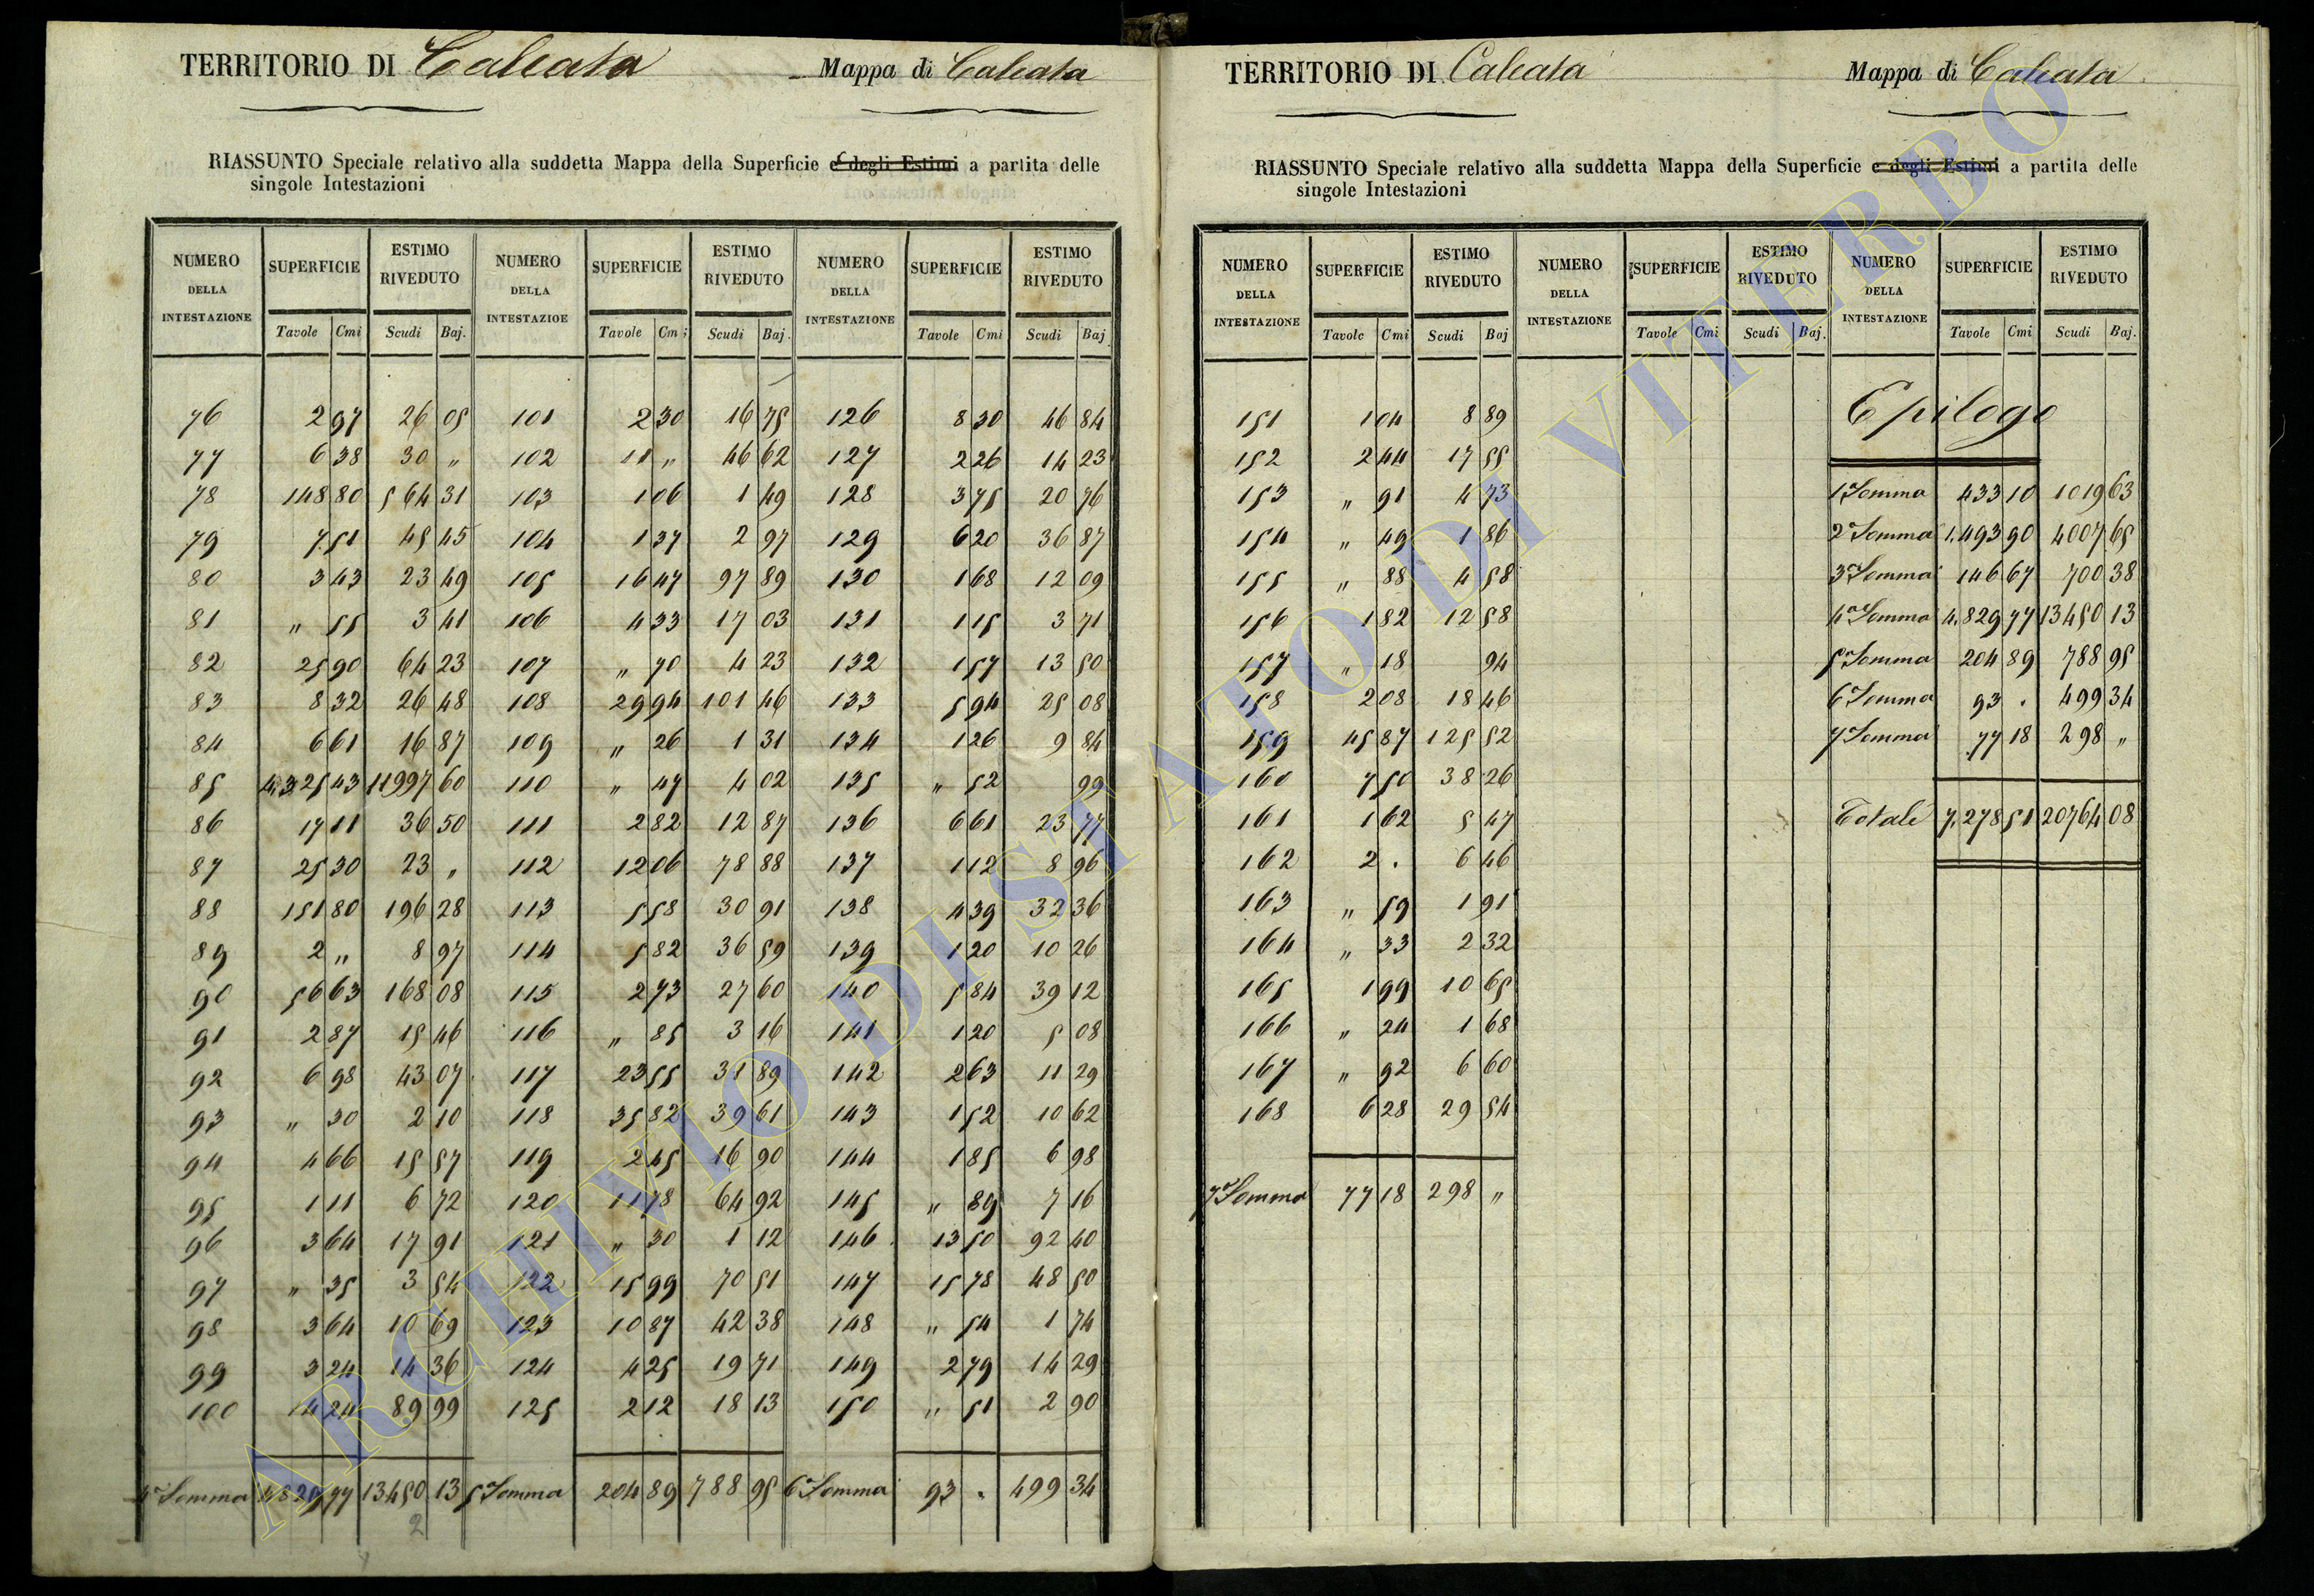 TERRITORIO DI Calcata Mappa di Calcata
RIASSUNTO Speciale relativo alla suddetta Mappa della Superficie e degli Estimi a partita delle
singole Intestazioni
NUMERO DELLA INTESTAZIONE SUPERFICIE ESTIMO RIVEDUTO NUMERO DELLA INTESTAZIOE SUPERFICIE ESTIMO RIVEDUTO NUMERO DELLA INTESTAZIONE SUPERFICIE ESTIMO RIVEDUTO
Tavole Cmi Scudi Baj. Tavole Cmi Scudi Baj. Tavole Cmi Scudi Baj.
76 2 97 26 05 101 2 30 16 75 126 8 30 46 84
77 6 38 30 „ 102 11 „ 46 62 127 2 26 14 23
78 148 80 564 31 103 1 06 1 49 128 3 75 20 76
79 7 51 45 45 104 1 37 2 97 129 6 20 36 87
80 3 43 23 49 105 16 47 97 89 130 1 68 12 09
81 „ 55 3 41 106 4 33 17 03 131 1 15 3 71
82 25 90 64 23 107 „ 70 4 23 132 1 57 13 50
83 8 32 26 48 108 29 94 101 46 133 5 94 25 08
84 6 61 16 87 109 „ 26 1 31 134 1 26 9 84
85 4,325 43 11997 60 110 „ 47 4 02 135 „ 52 99
86 17 11 36 50 111 2 82 12 87 136 6 61 23 77
87 25 30 23 „ 112 12 06 78 88 137 1 12 8 96
88 151 80 196 28 113 5 58 30 91 138 4 39 32 36
89 2 „ 8 97 114 5 82 36 59 139 1 20 10 26
90 56 63 168 08 115 2 73 27 60 140 5 84 39 12
91 2 87 15 46 116 „ 85 3 16 141 1 20 5 08
92 6 98 43 07 117 23 55 31 89 142 2 63 11 29
93 „ 30 2 10 118 35 82 39 61 143 1 52 10 62
94 4 66 15 57 119 2 45 16 90 144 1 85 6 98
95 1 11 6 72 120 11 78 64 92 145 „ 89 7 16
96 3 64 17 91 121 „ 30 1 12 146 13 50 92 40
97 „ 35 3 54 122 15 99 70 51 147 15 78 48 50
98 3 64 10 69 123 10 87 42 38 148 „ 54 1 74
99 3 24 14 36 124 4 25 19 71 149 2 79 14 29
100 14 24 89 99 125 2 12 18 13 150 „ 51 2 90
4ª Somma 4,829 77 13450 13 5ª Somma 204 89 788 95 6ª Somma 93 . 499 34
2
TERRITORIO DI Calcata Mappa di Calcata
RIASSUNTO Speciale relativo alla suddetta Mappa della Superficie e degli Estimi a partita delle
singole Intestazioni
NUMERO DELLA INTESTAZIONE SUPERFICIE ESTIMO RIVEDUTO NUMERO DELLA INTESTAZIONE SUPERFICIE ESTIMO RIVEDUTO NUMERO DELLA INTESTAZIONE SUPERFICIE ESTIMO RIVEDUTO
Tavole Cmi Scudi Baj Tavole Cmi Scudi Baj. Tavole Cmi Scudi Baj.
151 1 04 8 89
152 2 44 17 55
153 „ 91 4 73
154 „ 49 1 86
155 „ 88 4 58
156 1 82 12 58
157 „ 18 94
158 2 08 18 46
159 45 87 125 52
160 7 50 38 26
161 1 62 5 47
162 2 . 6 46
163 „ 59 1 91
164 „ 33 2 32
165 1 99 10 65
166 „ 24 1 68
167 „ 92 6 60
168 6 28 29 54
7ª Somma 77 18 298 „
Epilogo
1ª Somma 433 10 1019 63
2ª Somma 1,493 90 4007 65
3ª Somma 146 67 700 38
4ª Somma 4,829 77 13450 13
5ª Somma 204 89 788 95
6ª Somma 93 . 499 34
7ª Somma 77 18 298 „
Totale 7,278 51 20764 08
ARCHIVIO DI STATO DI VITERBO